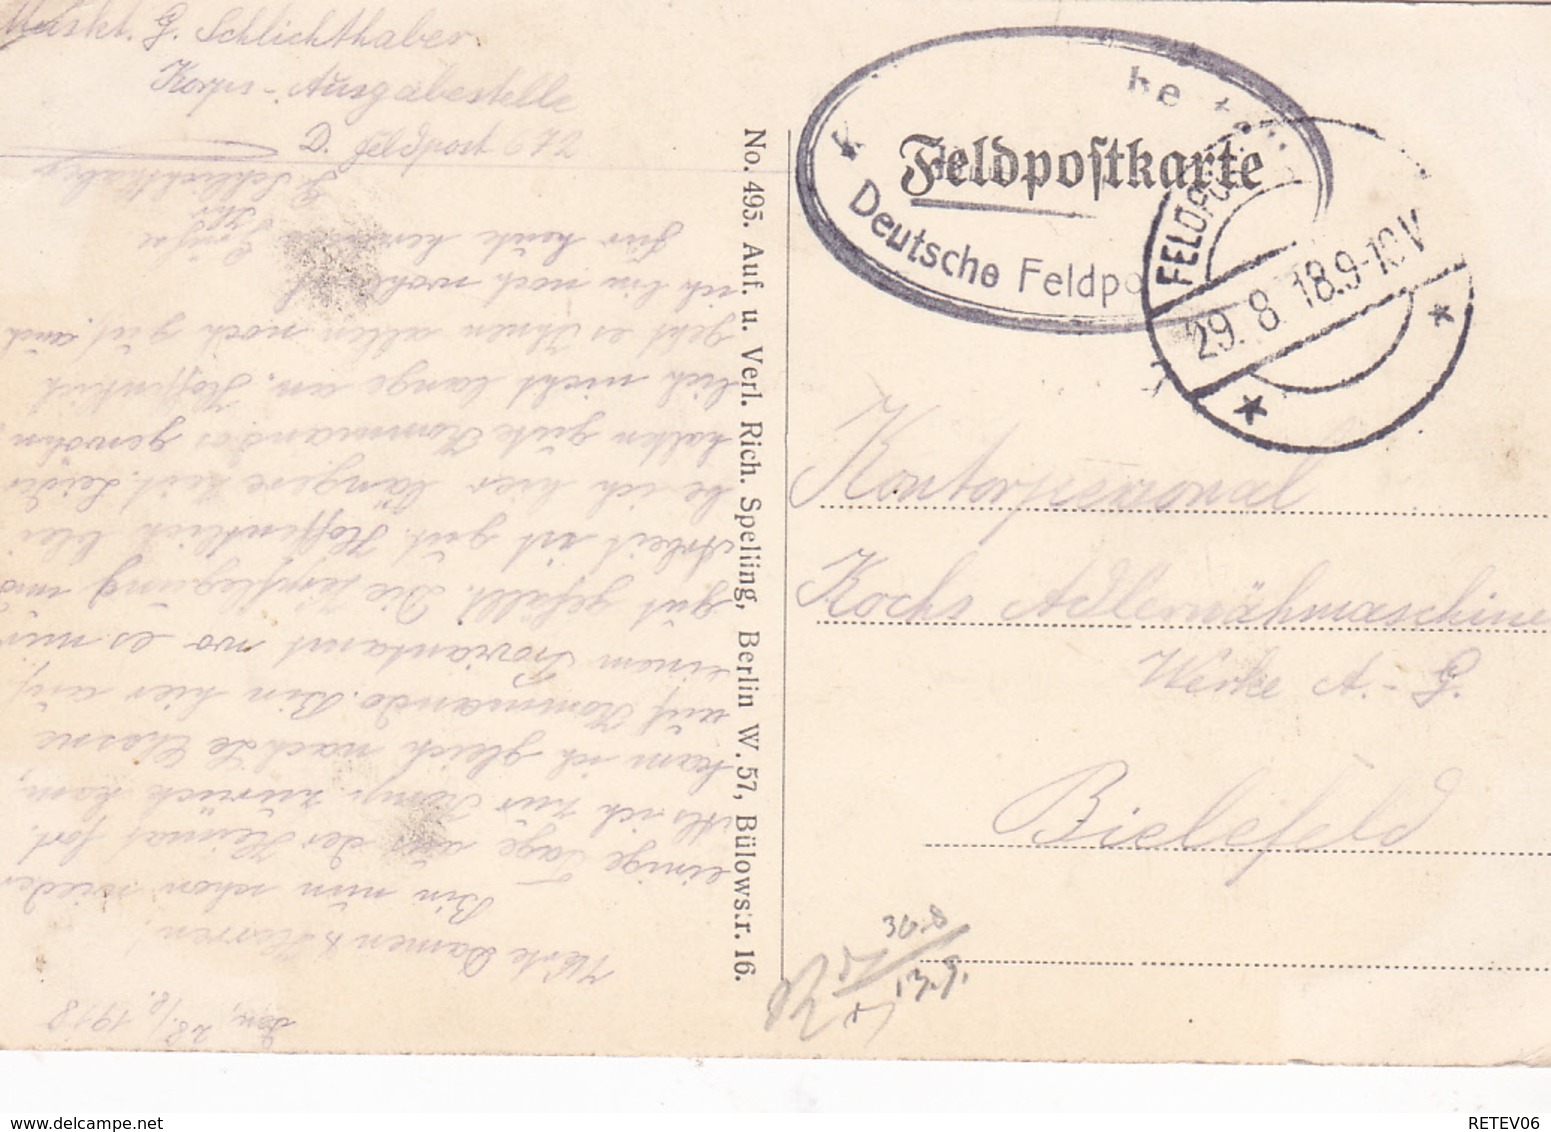 Muskt. G. Schlichthaber
Korps-Ausgabestelle
D. Feldpost 972
Feldpostkarte
Deutsche Feldpo
FELDPOS
29. 8. 18. 9-10 V
Kontorpersonal
Kochs Adlernähmaschinen
Werke A.-G.
Bielefeld
30.8
13.9.
No. 495. Auf. u. Verl. Rich. Spelling, Berlin W. 57, Bülowstr. 16.
Den, 28./8. 1918
Werte Damen & Herren!
Bin nun schon wieder
einige Tage aus der Heimat fort.
Als ich zur Komp. zurück kam,
kam ich gleich nach Le Chesne
auf Kommando. Bin hier auf
einem Proviantamt wo es mir
gut gefällt. Die Verpflegung und
Arbeit ist gut. Hoffentlich blei
be ich hier längere Zeit. Leider
halten gute Kommandos gewöhn
lich nicht lange an. Hoffentlich
geht es Ihnen allen noch gut, auch
ich bin noch wohl
Für heute
Grüße
Ihr
G. Schlichthaber
RETEV06